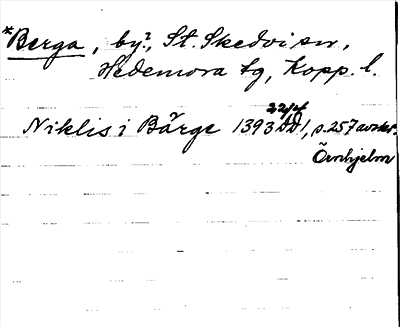 *Berga, by?, St. Skedvi sn,
Hedemora tg, Kopp. l.
22/4
Niklis i Bärge 1393 DD1, s.257 avskr.
Örnhjelm